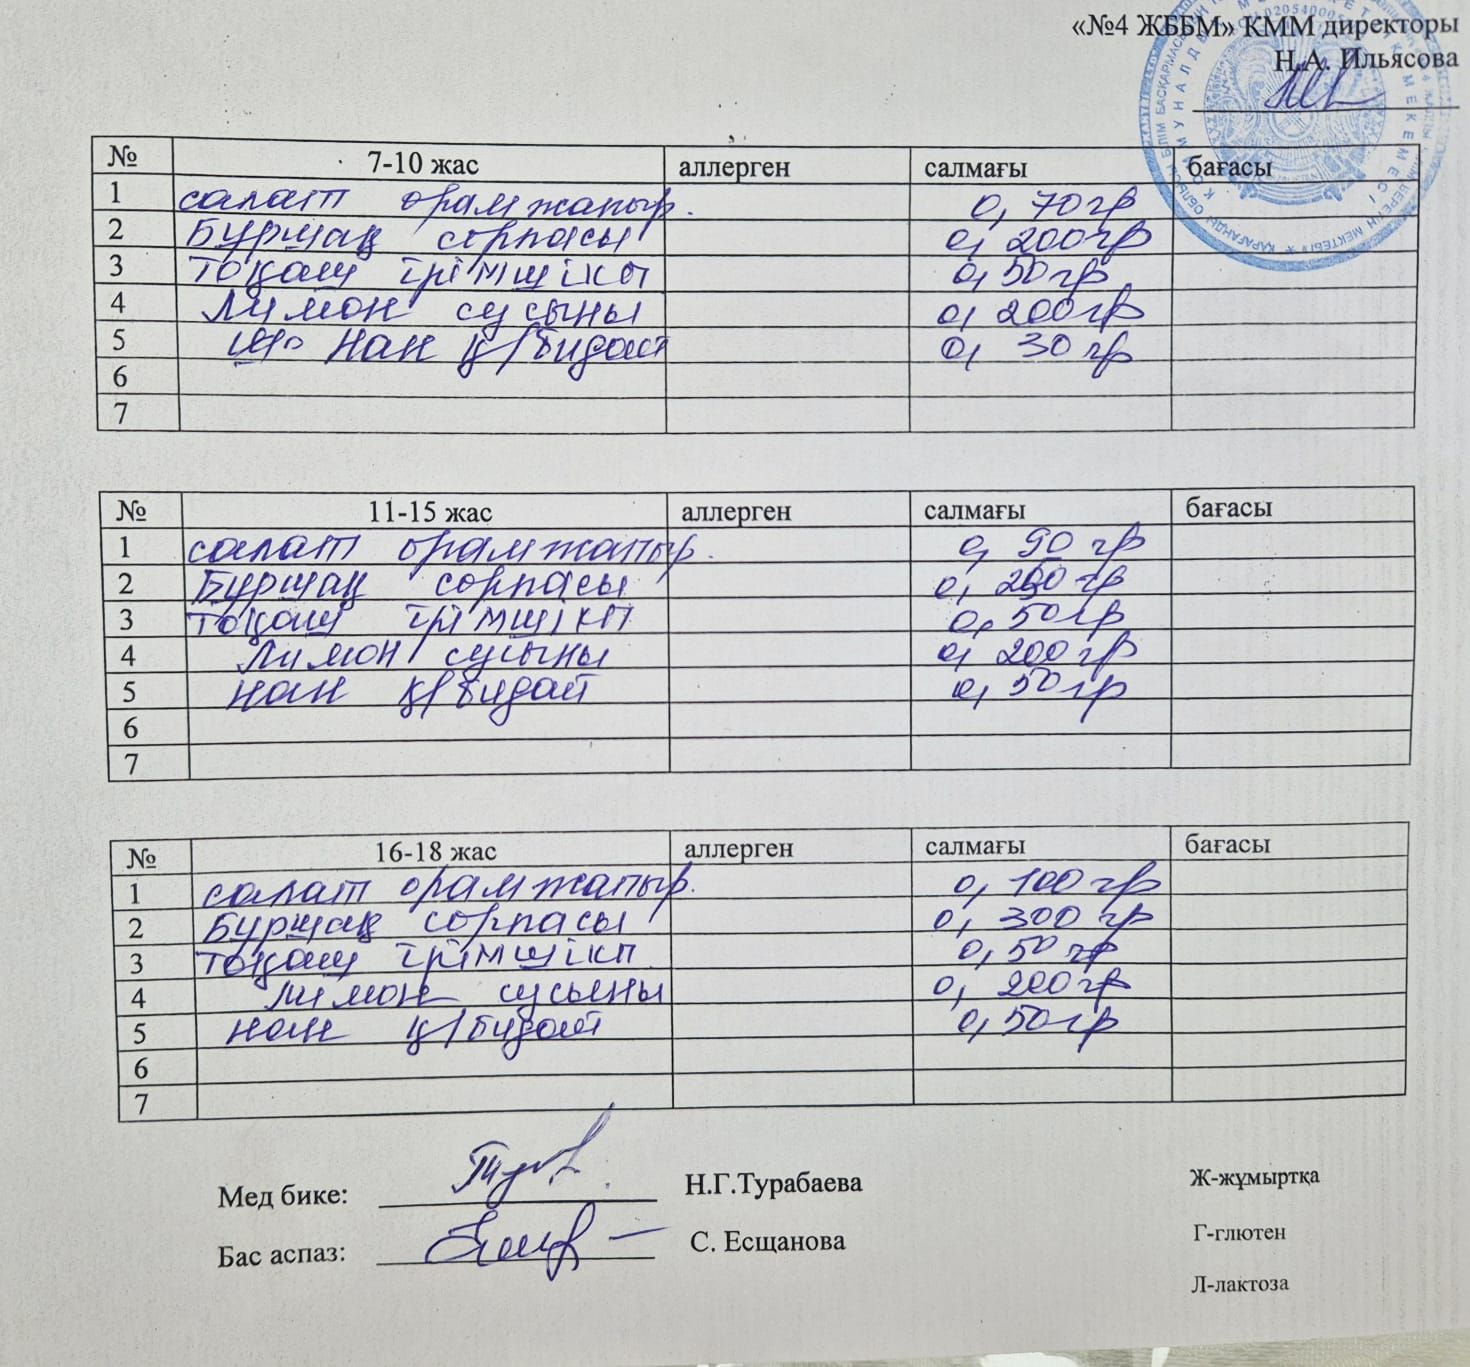 «№4 ЖББМ» КММ директоры
Н.А. Ильясова
№ 7-10 жас аллерген салмағы бағасы
1 салат орамжапыр. 0, 70 гр
2 Бұршақ сорпасы 0, 200 гр
3 тоқаш ірімшікп 0, 50 гр
4 Лимон сусыны 0, 200 гр
5 нан қ/бидай 0, 30 гр
6
7
№ 11-15 жас аллерген салмағы бағасы
1 салат орамжапыр. 0, 90 гр
2 Бұршақ сорпасы 0, гр
3 тоқаш ірімшікп 0, 50 гр
4 Лимон сусыны 0, 200 гр
5 нан қ/бидай 0, 50 гр
6
7
№ 16-18 жас аллерген салмағы бағасы
1 салат орамжапыр. 0, 100 гр
2 Бұршақ сорпасы 0, 300 гр
3 тоқаш ірімшікп 0, 50 гр
4 Лимон сусыны 0, 200 гр
5 нан қ/бидай 0, 50 гр
6
7
Мед бике: Н.Г.Турабаева
Бас аспаз: С. Есщанова
Ж-жұмыртқа
Г-глютен
Л-лактоза